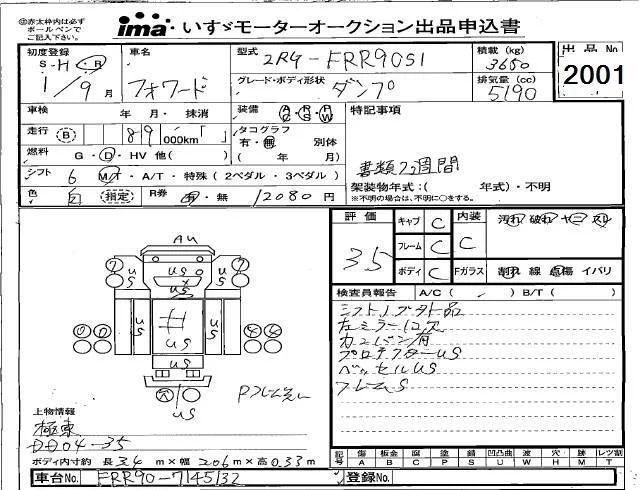 ㊟赤太枠内は必ず
ボールペンで
ご記入下さい。
ima いすゞモーターオークション出品申込書
初度登録 S・H・R 1/9月
車名 フォワード
型式 2RG-FRR90S1
積載 (kg) 3650
出品No. 2001
グレード・ボディ形状 ダンプ
排気量 (cc) 5190
車検 年 月・ 抹消
装備 AC PS PW
特記事項
走行 B 89 000km「 」
タコグラフ 有・無 別体
( 年 月)
燃料 G・D・HV 他( )
書類2週間
シフト 6 M/T・A/T・特殊(2ペダル・3ペダル)
架装物年式:( 年式)・不明
※不明の場合は、不明に○をする。
色 白 (指定) R券 有・無 12080円
評価 3.5
キャブ C 内装 C 汚れ 破れ ヤニ スレ
フレーム C
ボディ C Fガラス 割れ 線 点傷 イバリ
検査員報告 A/C( ) B/T( )
シフトノブ外品
左ミラーリ欠
カエバン有
プロテクターUS
ベッセルUS
フレームS
AU
US
US
US
US
US
US
US
US
上物情報
極東
DD04-35
ボディ内寸約 長3.4m×幅2.06m×高0.33m
記号 傷A 板金B 腐C 塗P 錆S 凹凸曲U 波W 穴H 跡M 飛T レツ割
車台No. FRR90-7145132
登録No.